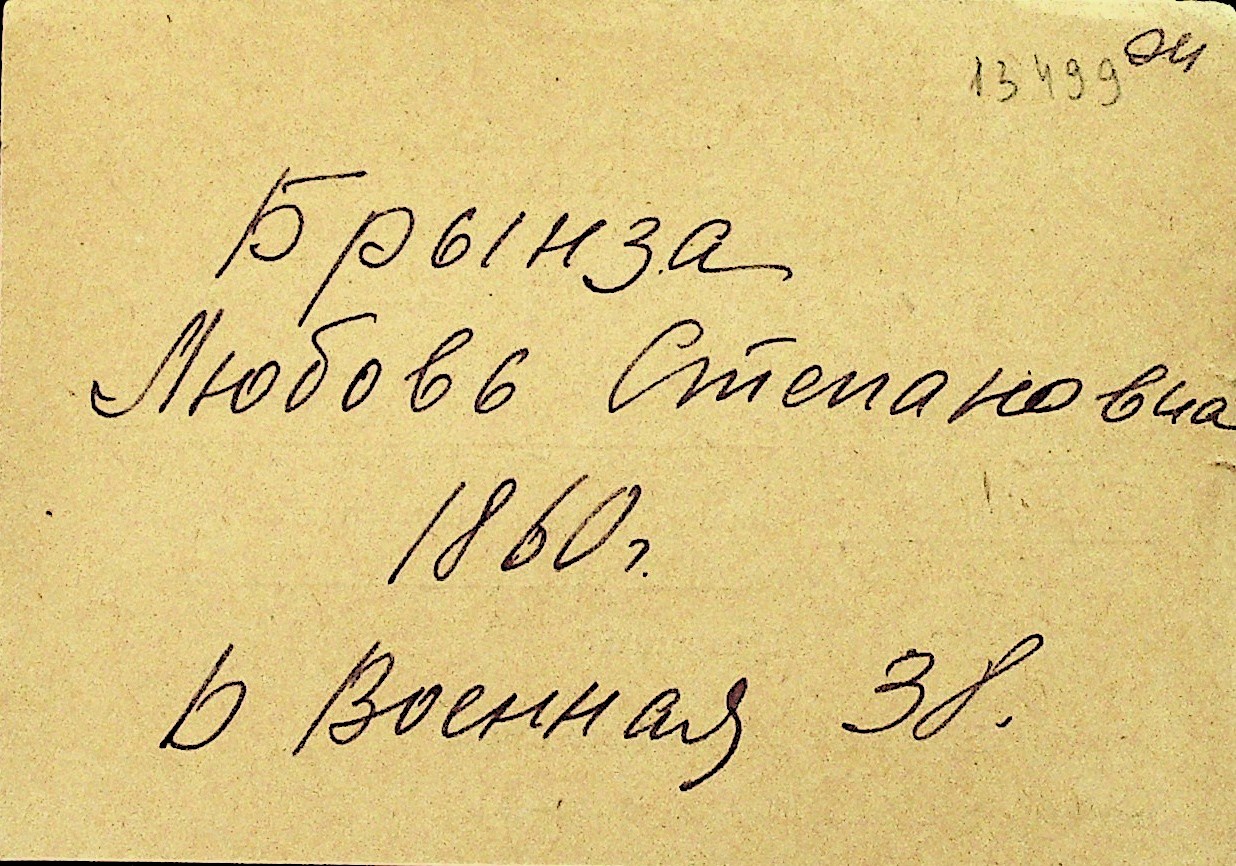 13499
Брынза
Любовь Степановна
1860г.
Ь Военная 38.